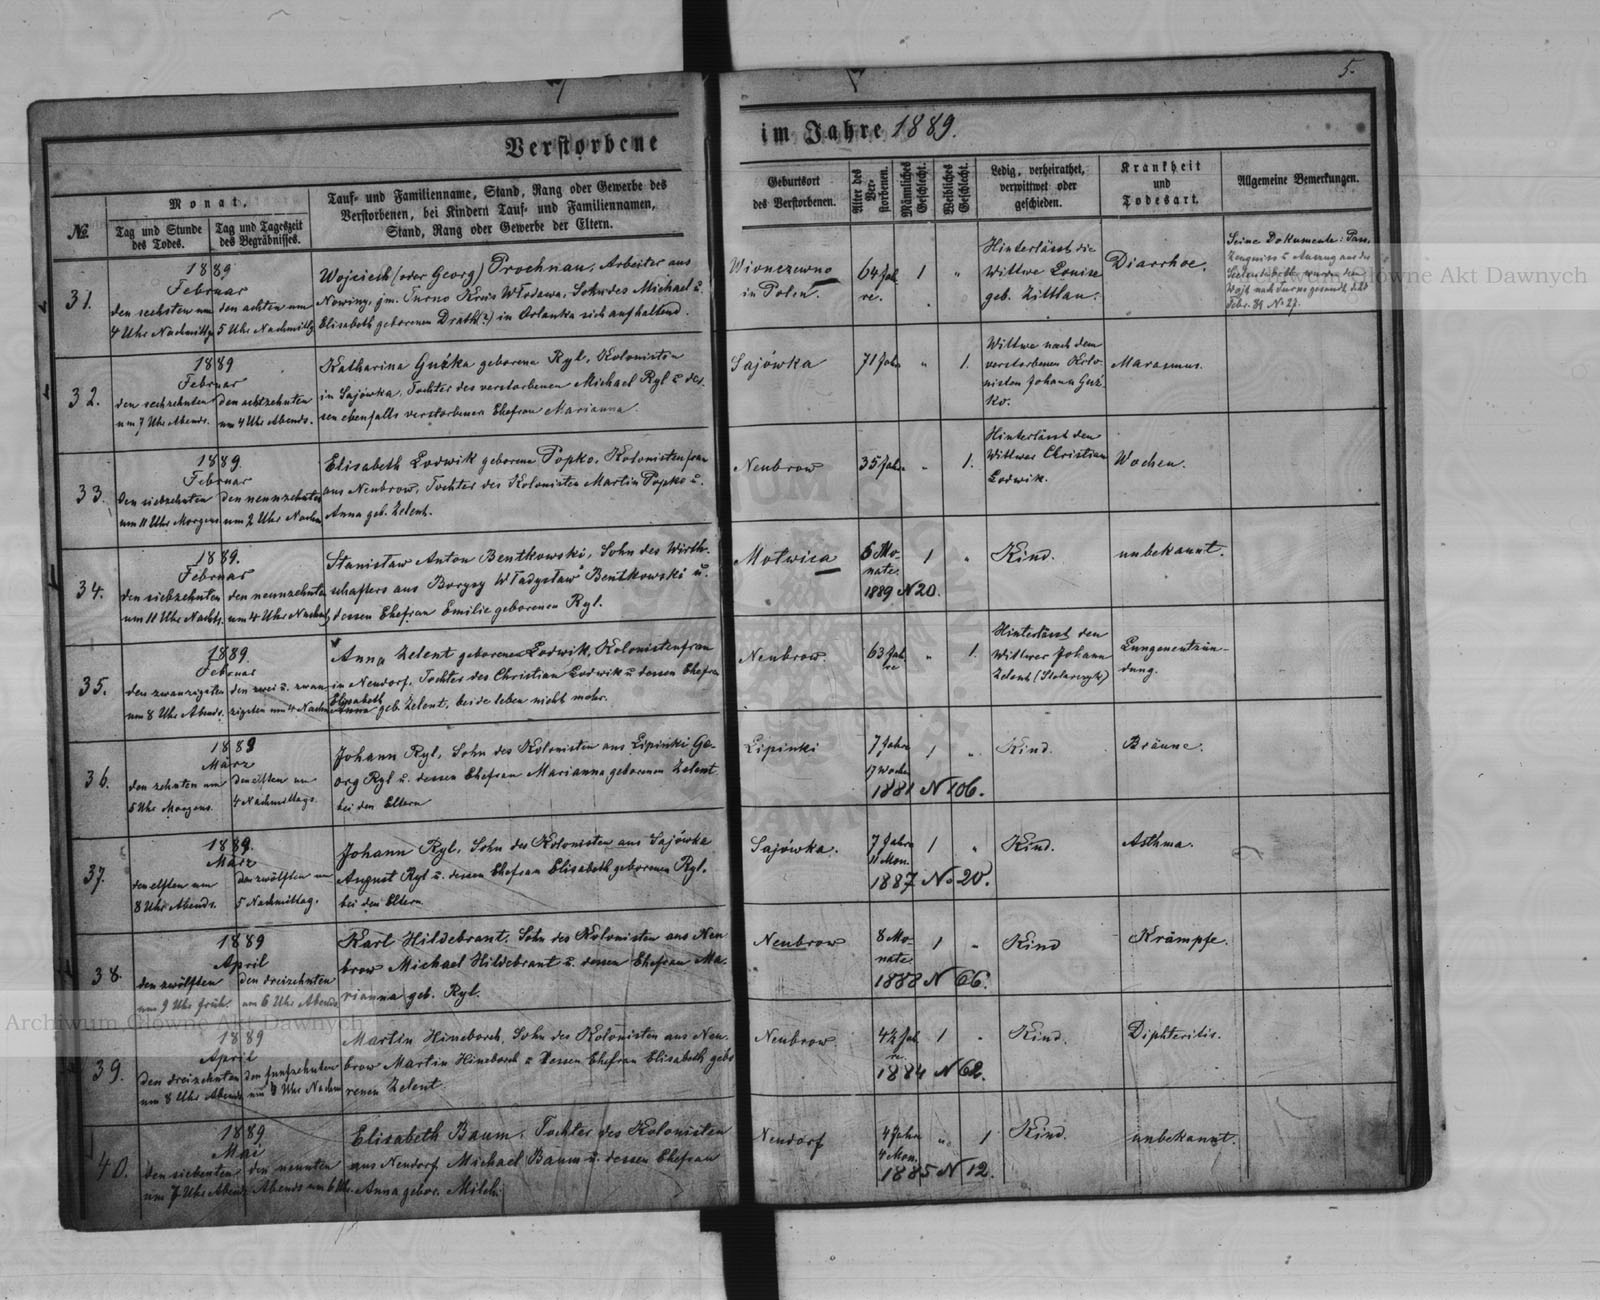 5.
Verstorbene im Jahre 1889.
№
Monat,
Tag und Stunde des Todes.
Tag und Tageszeit des Begräbnisses.
Tauf- und Familienname, Stand, Rang oder Gewerbe des
Verstorbenen, bei Kindern Tauf- und Familiennamen,
Stand, Rang oder Gewerbe der Eltern.
Geburtsort
des Verstorbenen.
Alter des Verstorbenen.
Männliches Geschlecht.
Weibliches Geschlecht.
Ledig, verheirathet,
verwittwet oder
geschieden.
Krankheit
und
Todesart.
Allgemeine Bemerkungen.
31.
1889
Februar
den sechsten um
4 Uhr Nachmittg
den achten um
5 Uhr Nachmittg
Wojciech (oder Georg) Prochnau, Arbeiter aus
Nowiny, gm. Turno Kreis Włodawa, Sohn des Michael u.
Elisabeth geborenen Drath(?) in Orlanka sich aufhaltend.
Wionczewno
in Polen.
64 Jah
re.
1
"
Hinterlässt die
Wittwe Louise
geb. Zittlau.
Diarrhoe.
Seine Dokumente: Pass,
Zeugniss u Auszug aus der
Wojt nach Turno gesandt d. 20
Febr. 89 № 27.
32.
1889
Februar
den sechzehnten
um 7 Uhr Abends.
den achtzehnten
um 4 Uhr Abends.
Katharina Guzka geborene Ryl, Kolonistin
in Sajówka, Tochter des verstorbenen Michael Ryl u des
sen ebenfalls verstorbenen Ehefrau Marianna.
Sajówka
71 Jahr
"
1.
Wittwe nach dem
verstorbenen Kolo-
nisten Johann Guz-
ko.
Marasmus.
33.
1889.
Februar
den siebzehnten
um 11 Uhr Morgens
den neunzehnten
um 2 Uhr Nachm
Elisabeth Lodwik geborene Popko, Kolonistenfrau
aus Neubrow, Tochter des Kolonisten Martin Popko u.
Anna geb. Zelent.
Neubrow
35 Jahr
"
1.
Hinterlässt den
Wittwer Christian
Lodwik.
Wochen.
34.
1889.
Februar
den siebzehnten
um 11 Uhr Nachts.
den neunzehnten
um 4 Uhr Nachmt
Stanisław Anton Bentkowski, Sohn des Wirth-
schafters aus Borysy Władysław Bentkowski u.
dessen Ehefrau Emilie geborenen Ryl.
Motwica
6 Mo-
nate.
1889 N 20.
1
"
Kind.
unbekannt.
35.
1889.
Februar
den zwanzigsten
um 8 Uhr Abends.
den zwei u. zwan
zigsten um 4 Nachm
Anna Zelent geborene Lodwik, Kolonistenfrau
in Neudorf, Tochter des Christian Lodwik u dessen Ehefrau
Elisabeth
Anna geb. Zelent, beide leben nicht mehr.
Neubrow.
63 Jah
re
"
1.
Hinterlässt den
Wittwer Johann
Zelent (Stolarczyk)
Lungenentzün-
dung.
36.
1889
März
den zehnten um
5 Uhr Morgens.
den elften um
4 Nachmittags.
Johann Ryl, Sohn des Kolonisten aus Lipinki Ge-
org Ryl u. dessen Ehefrau Marianna geborenen Zelent
bei den Eltern
Lipinki
7 Jahre
17 Woche
1881 N 106.
1
"
Kind.
Bräune.
37.
1889.
März
den elften um
8 Uhr Abends.
den zwölften um
5 Nachmittag.
Johann Ryl, Sohn des Kolonisten aus Sajówka
August Ryl u. dessen Ehefrau Elisabeth geborenen Ryl.
bei den Eltern
Sajówka.
7 Jahre
11 Mon.
1887 No 20.
1
"
Kind.
Asthma.
38.
1889
April
den zwölften
um 9 Uhr früh.
den dreizehnten
um 6 Uhr Abends.
Karl Hildebrant, Sohn des Kolonisten aus Neu
brow Michael Hildebrant u. dessen Ehefrau Ma-
rianna geb. Ryl.
Neubrow
8 Mo-
nate
1888 N 66.
1
"
Kind
Krämpfe.
39.
1889
April
den dreizehnten
um 8 Uhr Abends
den funfzehnten
um 3 Uhr Nachm
Martin Hineborch, Sohn des Kolonisten aus Neu-
brow Martin Hineborch u dessen Ehefrau Elisabeth gebo
renen Zelent.
Neubrow
4½ Jah
re
1884 N 62.
1
"
Kind.
Diphteritis.
40.
1889
Mai
den siebenten
um 7 Uhr Abend
den neunten
Abends um 6 Uhr.
Elisabeth Baum, Tochter des Kolonisten
aus Neudorf Michael Baum u. dessen Ehefrau
Anna gebor. Milch.
Neudorf
4 Jahre
4 Mon.
1885 N 12.
"
1
Kind.
unbekannt.
Archiwum Główne Akt Dawnych
Archiwum Główne Akt Dawnych